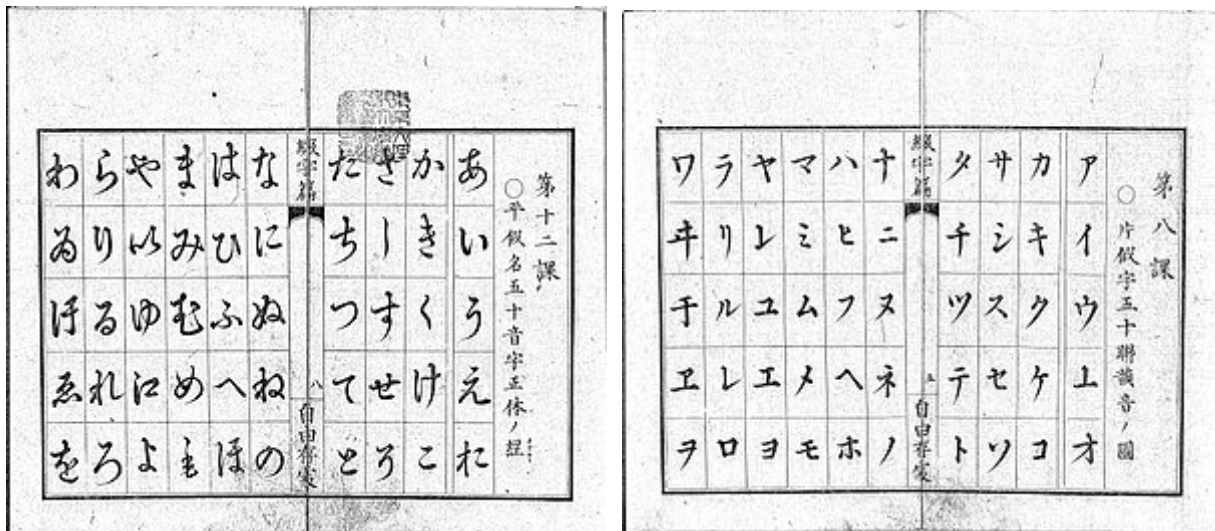 第十二課
○平假名五十音字正体ノ
あいうえお
かきくけこ
さしすせそ
たちつてと
綴字篇 八 自由
なにぬねの
はひふへほ
まみむめも
や以ゆ江よ
らりるれろ
わゐ汙ゑを
第八課
○片假字五十聯音ノ圖
アイウ⊥オ
カキクケコ
サシスセソ
タチツテト
綴字篇 五 自由
ナニヌネノ
ハヒフヘホ
マミムメモ
ヤレユエヨ
ラリルレロ
ワヰ于ヱヲ